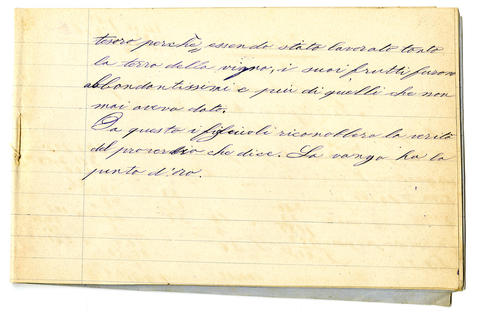 tesoro perchè, essendo stato lavorato tanto
la terra della vigna, i suoi frutti furono
abbondantissimi e più di quelli che non
mai aveva dato.
Da questo i figliuoli riconobbero la verità
del proverbio che dice. La vanga ha la
punta d'oro.